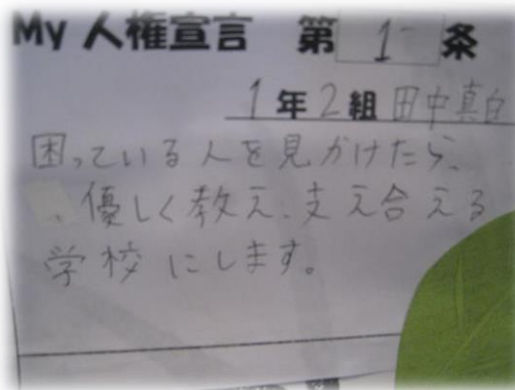 My 人権宣言 第 1 条
1年2組 田中真白
困っている人を見かけたら、
優しく教え、支え合える
学校にします。